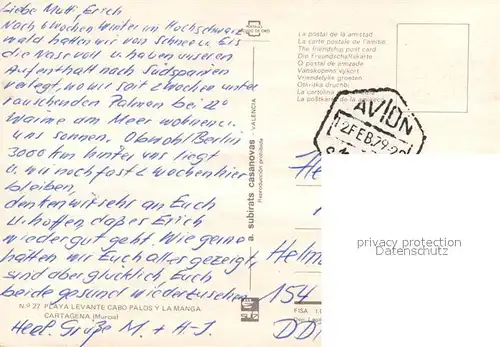 Liebe Mutti, Erich
Nach 6 wochen Winter im Hochschwarz
wald hatten wir von Schnee u. Eis
die Nase voll u. haben unseren
Aufenthalt nach Südspanien
verlegt, wo wir seit 2 wochen unter
rauschenden Palmen bei 22°
Wärme am Meer wohnen u.
uns sonnen. Obwohl Berlin
3000 km hinter uns liegt
u. wir noch fast 2 wochen hier
bleiben,
denken wir sehr an Euch
u. hoffen, daß es Erich
wieder gut geht. Wie gerne
hätten wir Euch alles gezeigt,
sind aber glücklich, Euch
beide gesund wiederzusehen
Nº 27 PLAYA LEVANTE CABO PALOS Y LA MANGA
CARTAGENA (Murcia)
Herzl. Grüße M. + H-J.
a. subirats casanovas - VALENCIA
Reproducción prohibida
La postal de la amistad
La carte postale de l'amitie
The friendship post card
Die Freundschaftskarte
O postal de amizade
Vänskapens vykort
Vriendelijke groeten
La cartolina
AVION
12 FEB. 79
privacy protection
Datenschutz
He
Helm
154
DD
FISA